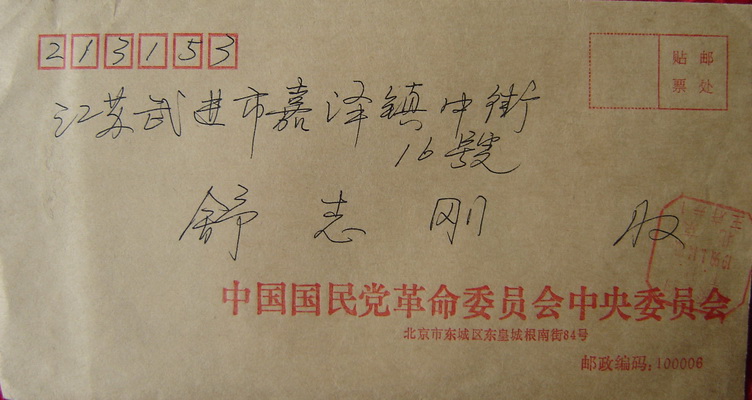 213153
贴邮
票处
江苏武进市嘉泽镇中街
16号
舒志刚 收
中国国民党革命委员会中央委员会
北京市东城区东皇城根南街84号
邮政编码:100006